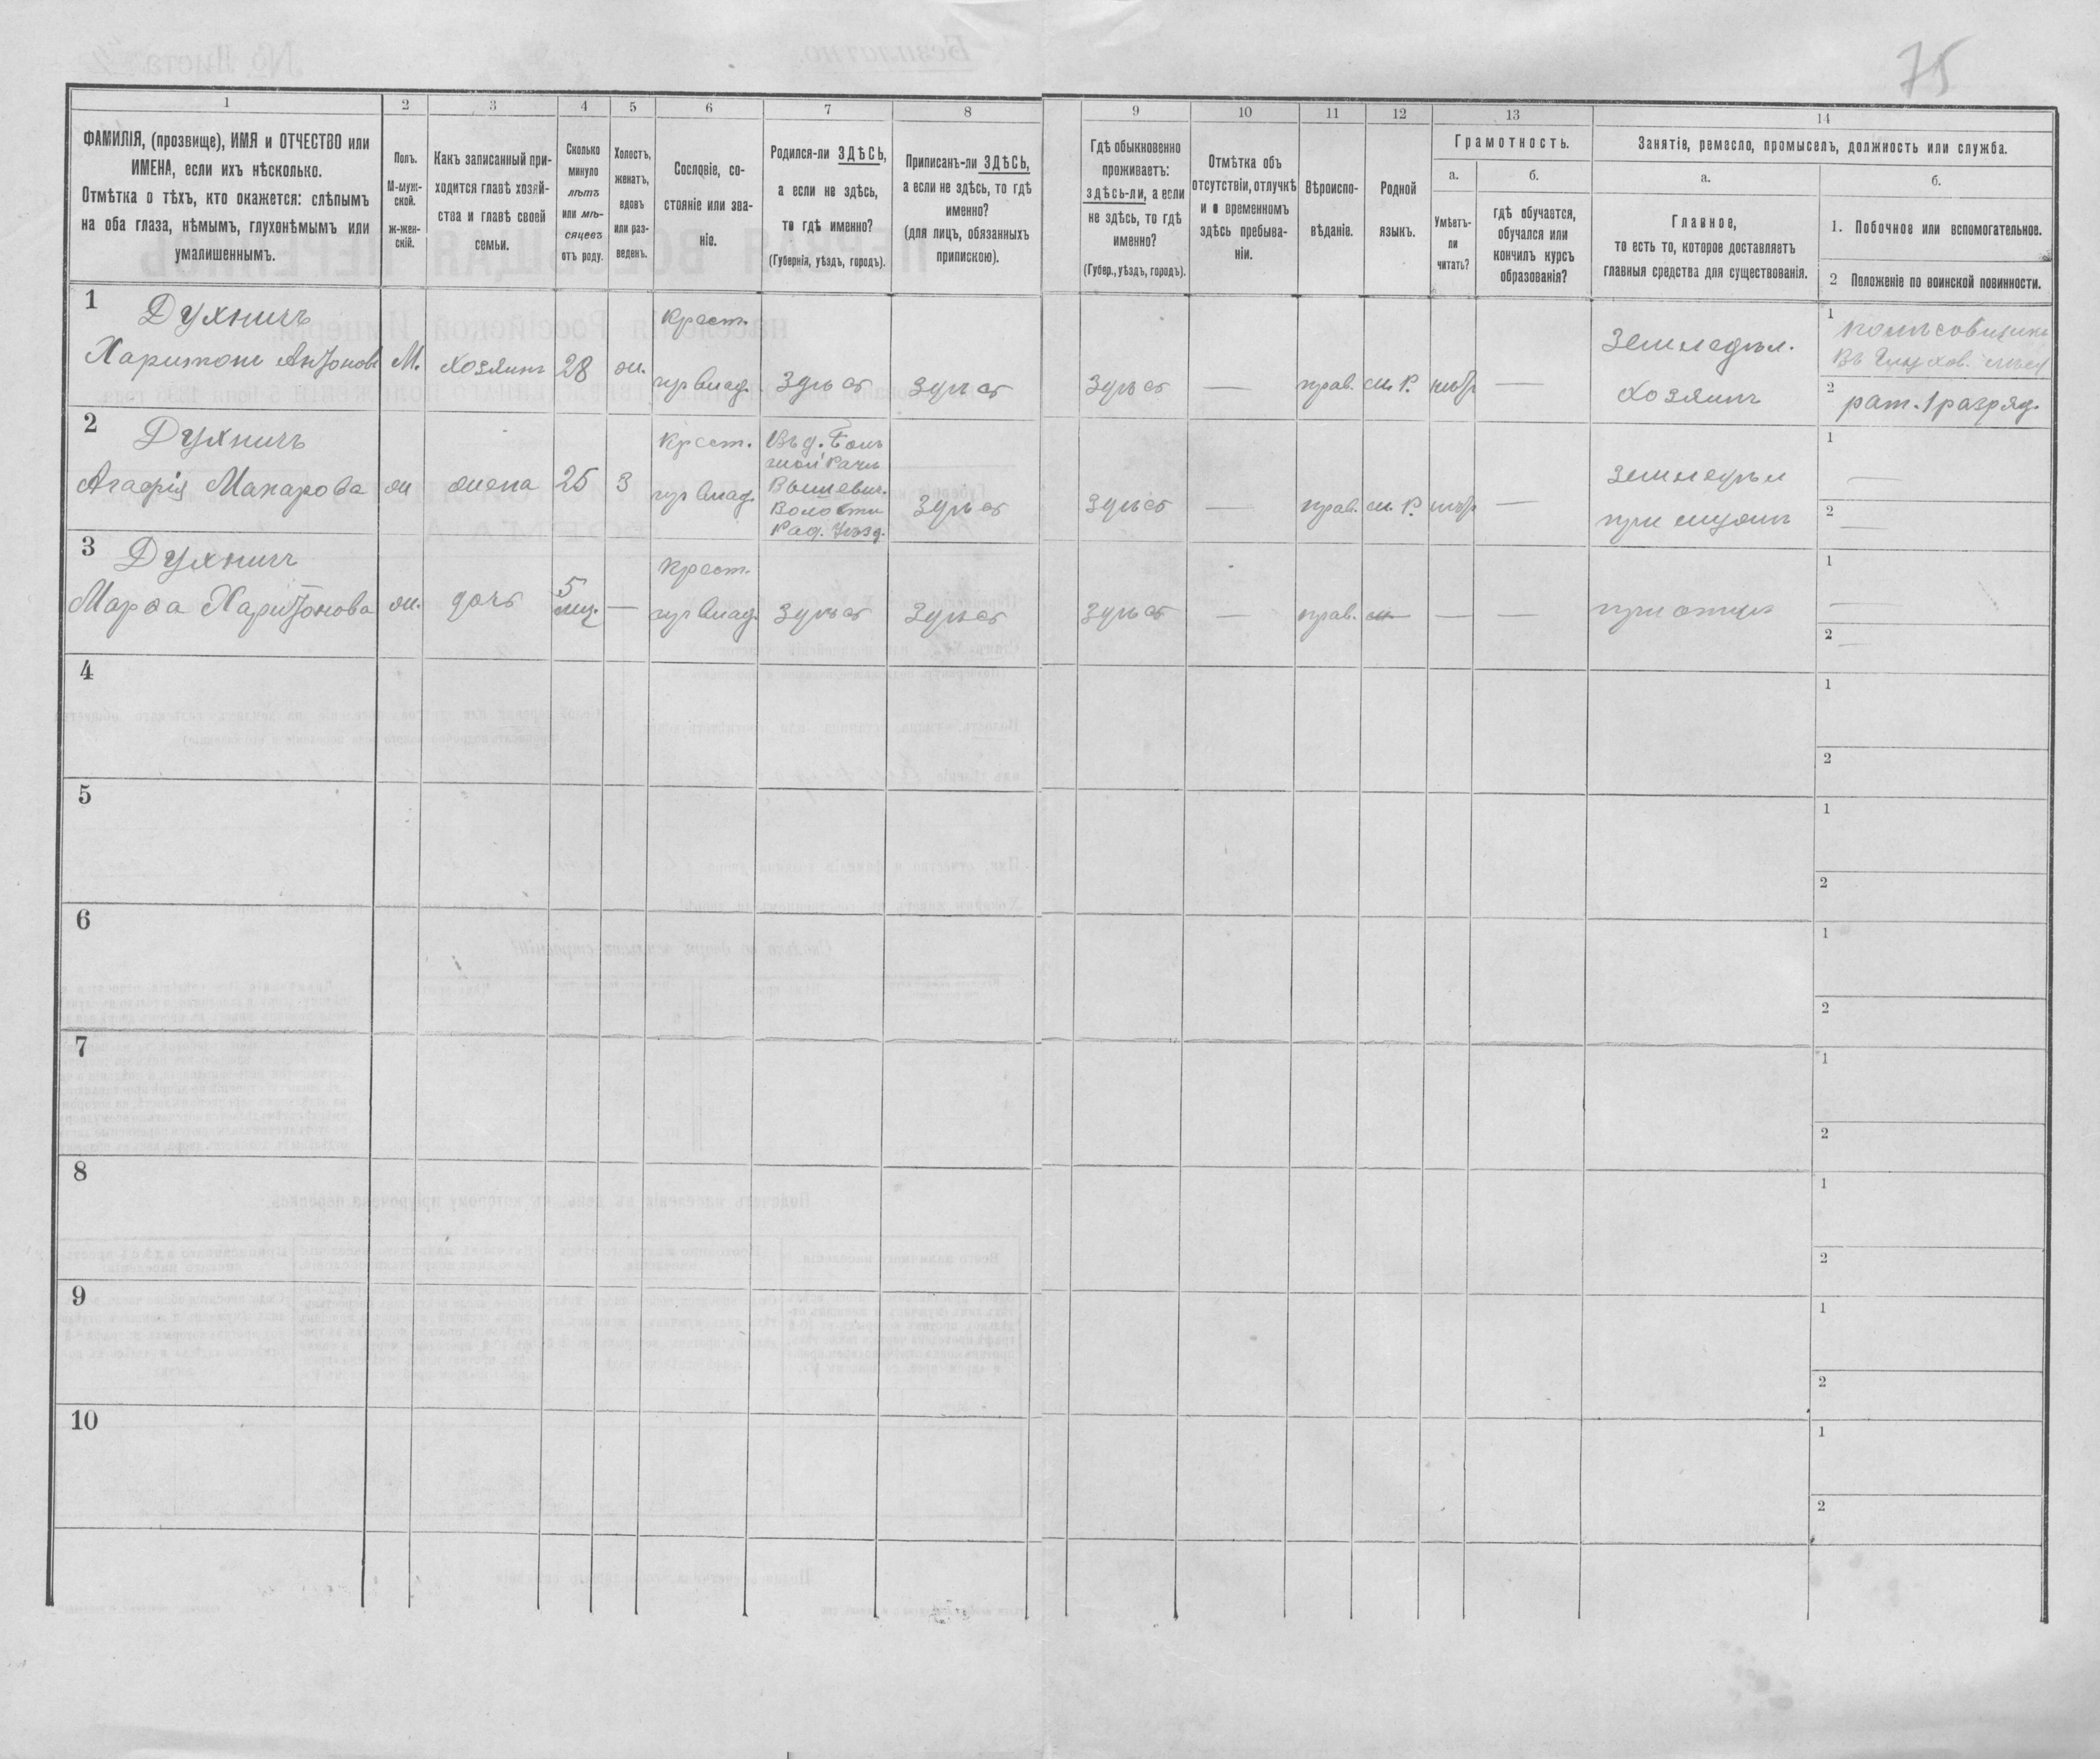 75
1
2
3
4
5
6
7
8
9
10
11
12
13
14
ФАМИЛІЯ, (прозвище), ИМЯ и ОТЧЕСТВО или
ИМЕНА, если ихъ нѣсколько.
Отмѣтка о тѣхъ, кто окажется: слѣпымъ
на оба глаза, нѣмымъ, глухонѣмымъ или
умалишеннымъ.
Полъ.
М-муж-
ской.
ж-жен-
скій.
Какъ записанный при-
ходится главѣ хозяй-
ства и главѣ своей
семьи.
Сколько
минуло
лѣтъ
или мѣ-
сяцевъ
отъ роду.
Холостъ,
женатъ,
вдовъ
или раз-
веденъ.
Сословіе, со-
стояніе или зва-
ніе.
Родился-ли ЗДѢСЬ,
а если не здѣсь,
то гдѣ именно?
(Губернія, уѣздъ, городъ).
Приписанъ-ли ЗДѢСЬ,
а если не здѣсь, то гдѣ
именно?
(для лицъ, обязанныхъ
припискою).
Гдѣ обыкновенно
проживаетъ:
здѣсь-ли, а если
не здѣсь, то гдѣ
именно?
(Губер., уѣздъ, городъ).
Отмѣтка объ
отсутствіи, отлучкѣ
и о временномъ
здѣсь пребыва-
ніи.
Вѣроиспо-
вѣданіе.
Родной
языкъ.
Грамотность.
а.
Умѣетъ-
ли
читать?
б.
гдѣ обучается,
обучался или
кончилъ курсъ
образованія?
Занятіе, ремесло, промыселъ, должность или служба.
а.
Главное,
то есть то, которое доставляетъ
главныя средства для существованія.
б.
1. Побочное или вспомогательное.
2 Положеніе по воинской повинности.
1
Духничъ
Харитонъ Антоновъ
М.
хозяинъ
28
ж.
Крест.
Здѣсь
Здѣсь
Здѣсь
—
прав.
м. Р.
нѣтъ
—
Земледѣл.
хозяинъ
1
2
рат. 1 разряд.
2
Духничъ
Агафія Макарова
ж
жена
25
З
Крест.
Въ д.
Вышевич.
Волости
Рад. Уѣзд.
Здѣсь
Здѣсь
—
прав.
м. Р.
нѣтъ
—
Земледѣл
при мужѣ
1
—
2
—
3
Духничъ
Марѳа Харитонова
ж.
дочь
5
мц.
—
Крест.
Здѣсь
Здѣсь
Здѣсь
—
прав.
—
—
—
при отцѣ
1
—
2
—
4
1
2
5
1
2
6
1
2
7
1
2
8
1
2
9
1
2
10
1
2